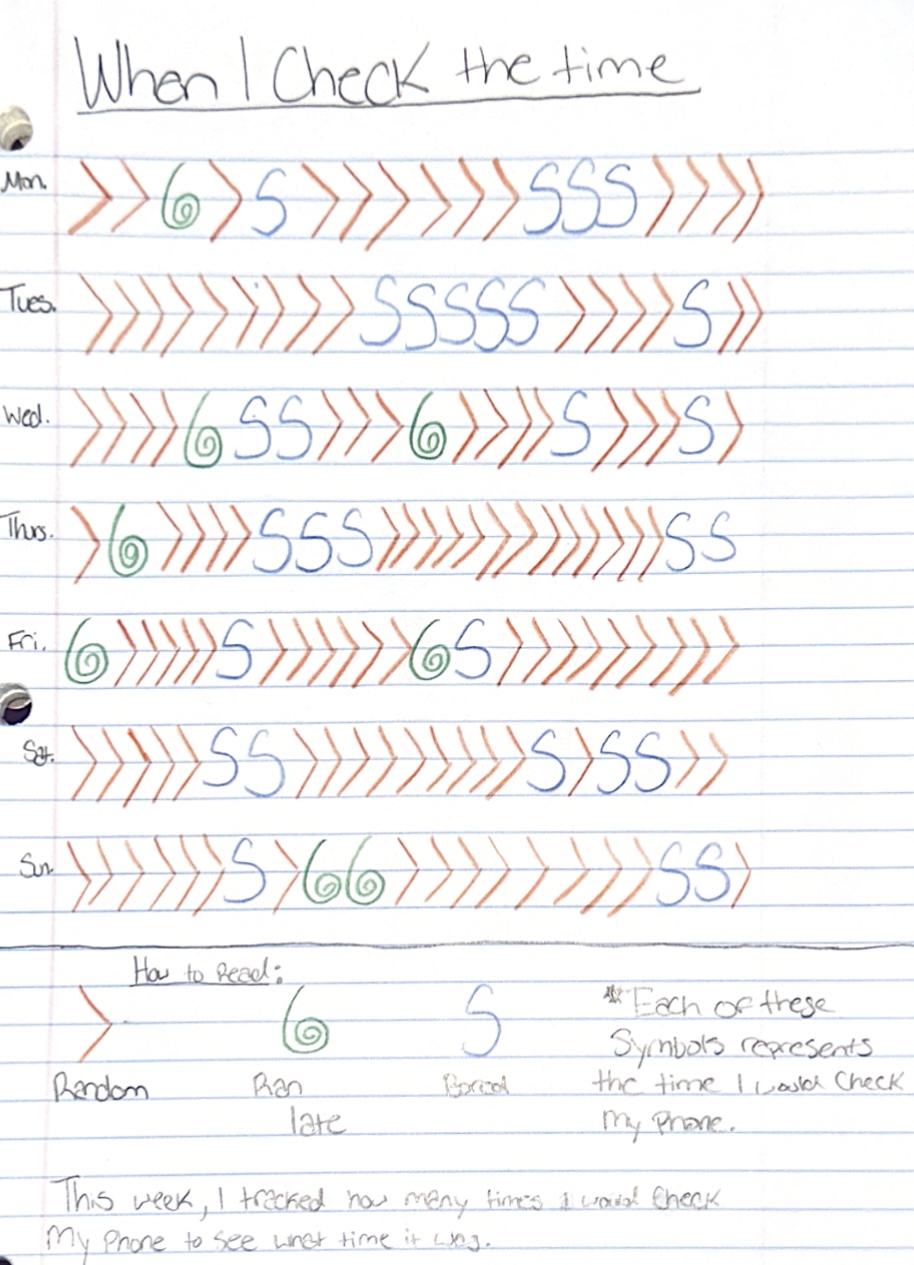 When I Check the time
Mon.
Tues.
Wed.
Thurs.
Fri.
Sat.
Sun.
How to Read:
Random
Ran
late
Bored
*Each of these
Symbols represents
the time I would Check
My Phone.
This week, I tracked how many times I would Check
My Phone to see what time it was.